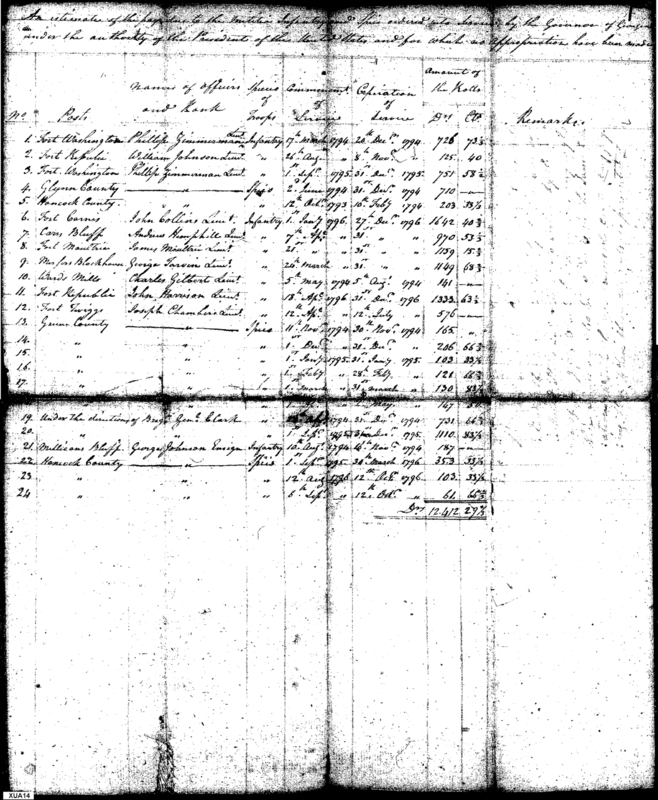 An estimate of the pay due to the Militia Infantry and Spies ordered into Service by the Governor of Georgia
under the authority of the President of the United States and for which no appropriation have been made
Amount of
Names of Officers Species Commencement Expiration the Rolls
and Rank of of of
No. Posts Troops Service Service Drs Cts Remarks
1. Fort Washington Phillip Zimmerman Lieut. Infantry 17th March 1794 20th Decr. 1794 726 73½
2. Fort Republic William Johnson Lieut. " 26th Augt. " 8th Novr. " 125. 40
3. Fort Washington Phillip Zimmerman Lieut. " 1st Sepr. 1795 31st Decr. 1795 751 58½
4. Glynn County — Spies 2d June 1794 31st Decr. 1794 710 —
5. Hancock County. — " 12th Octr. 1793 16th Feby 1794 203 33½
6. Fort Carnes John Collins Lieut. Infantry 1st Jany 1796 27th Decr. 1796 1642 40
7. Carrs Bluff Andrew Hemphill Lieut. " 7th Apl. " 31st " " 970 53
8. Fort Moultrie James Moultrie Lieut. " 21st " " " " 1159 15
9. Blockhouse George Lieut. " 24th March " 31st " " 1149 68
10. Wards Mills Charles Gilbert Lieut. " 5th May 1794 5th Augt. 1794 141 —
11. Fort Republic John Harrison Lieut. " 18th Apl. 1796 31st Decr. 1796 1333 63
12. Fort Twiggs Joseph Chambers Lieut. " 12th Apl. " 12th July " 576 —
13. Greene County — Spies 11th Novr. 1794 30th Novr. 1794 165 "
14. " " 1st Decr. " 31st Decr. " 206 66
15. " " 1st Jany 1795 31st Jany 1795 103 83
16. " " 1st Feby " 28th Feby. " 121 66
17. " " 1st March " 31st March " 130 83
" " 147
19. Under the direction of Brigr. Genl. Clark " 1794 31st Decr. 1794 731 66
20. " " 1st Sepr. 1795 1795 1110 83
21. Millicans Bluff George Johnson Ensign Infantry 10th Augt. 1794 14th Novr. 1794 187 —
22. Hancock County — " — Spies 1st Sepr. 1795 30th March 1796 353 33
23 " " 12th Augt 1796 12th Octr. 1796 103. 33
24 " " 6th Sepr. " 12th Octr. " 61. 66
Drs 12.412 29½
XUA14